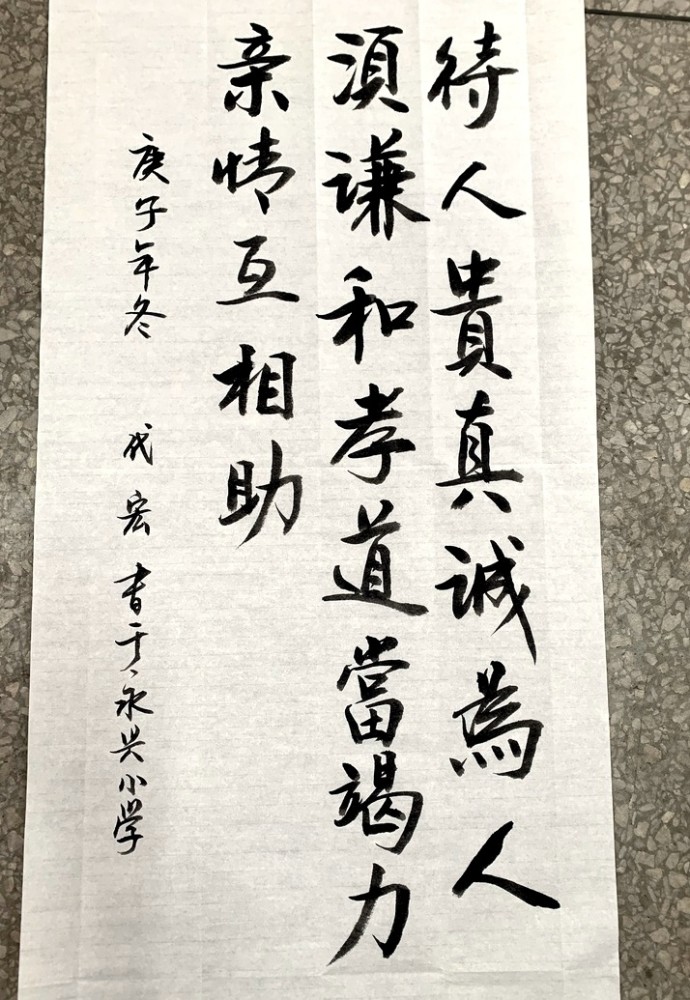 待人貴真誠為人
須謙和孝道當竭力
亲情互相助
庚子年冬 代宏书于永兴小学